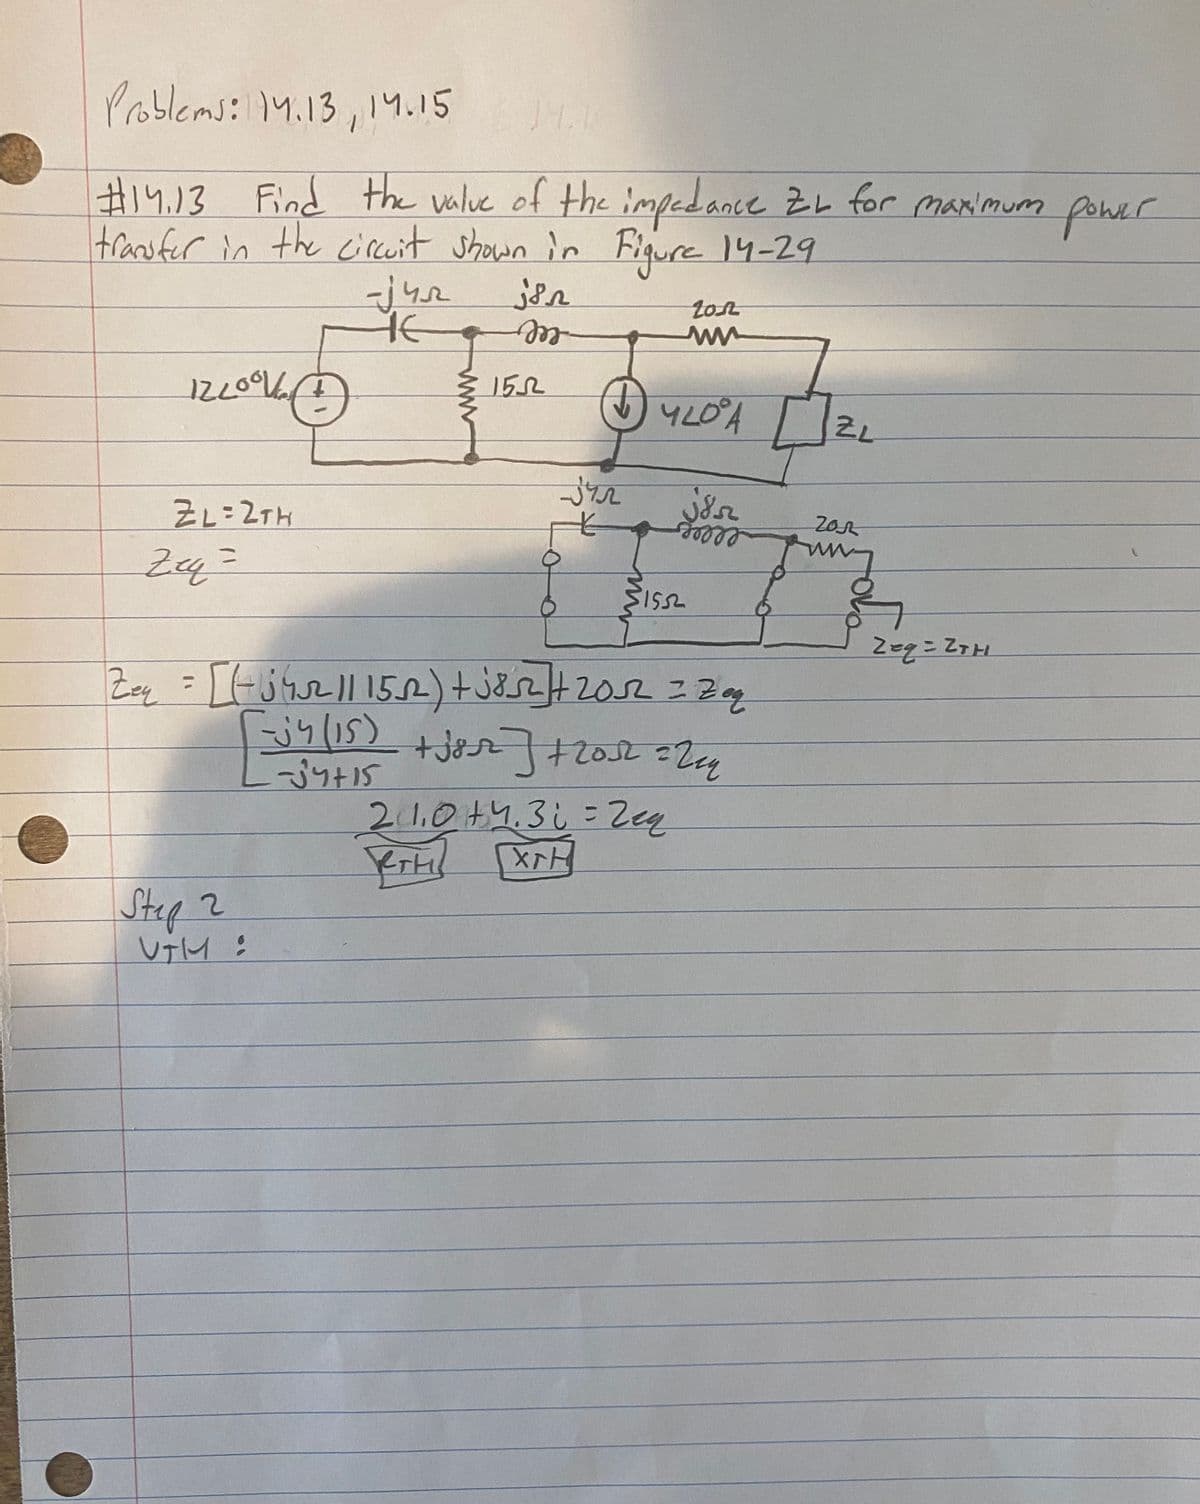 Problems: 14.13, 14.15
#14.13 Find the value of the impedance ZL for maximum power
transfer in the circuit shown in Figure 14-29
-j4Ω j8Ω 20Ω
12∠0°V 15Ω 4∠0°A ZL
+
-
ZL=ZTH
Zeq =
-j4Ω j8Ω 20Ω
15Ω
Zeq=ZTH
Zeq = [(-j4Ω || 15Ω) + j8Ω] + 20Ω = Zeq
[-j4(15) / -j4+15 + j8Ω] + 20Ω = Zeq
21.0 + 4.3i = Zeq
RTH XTH
Step 2
VTH :